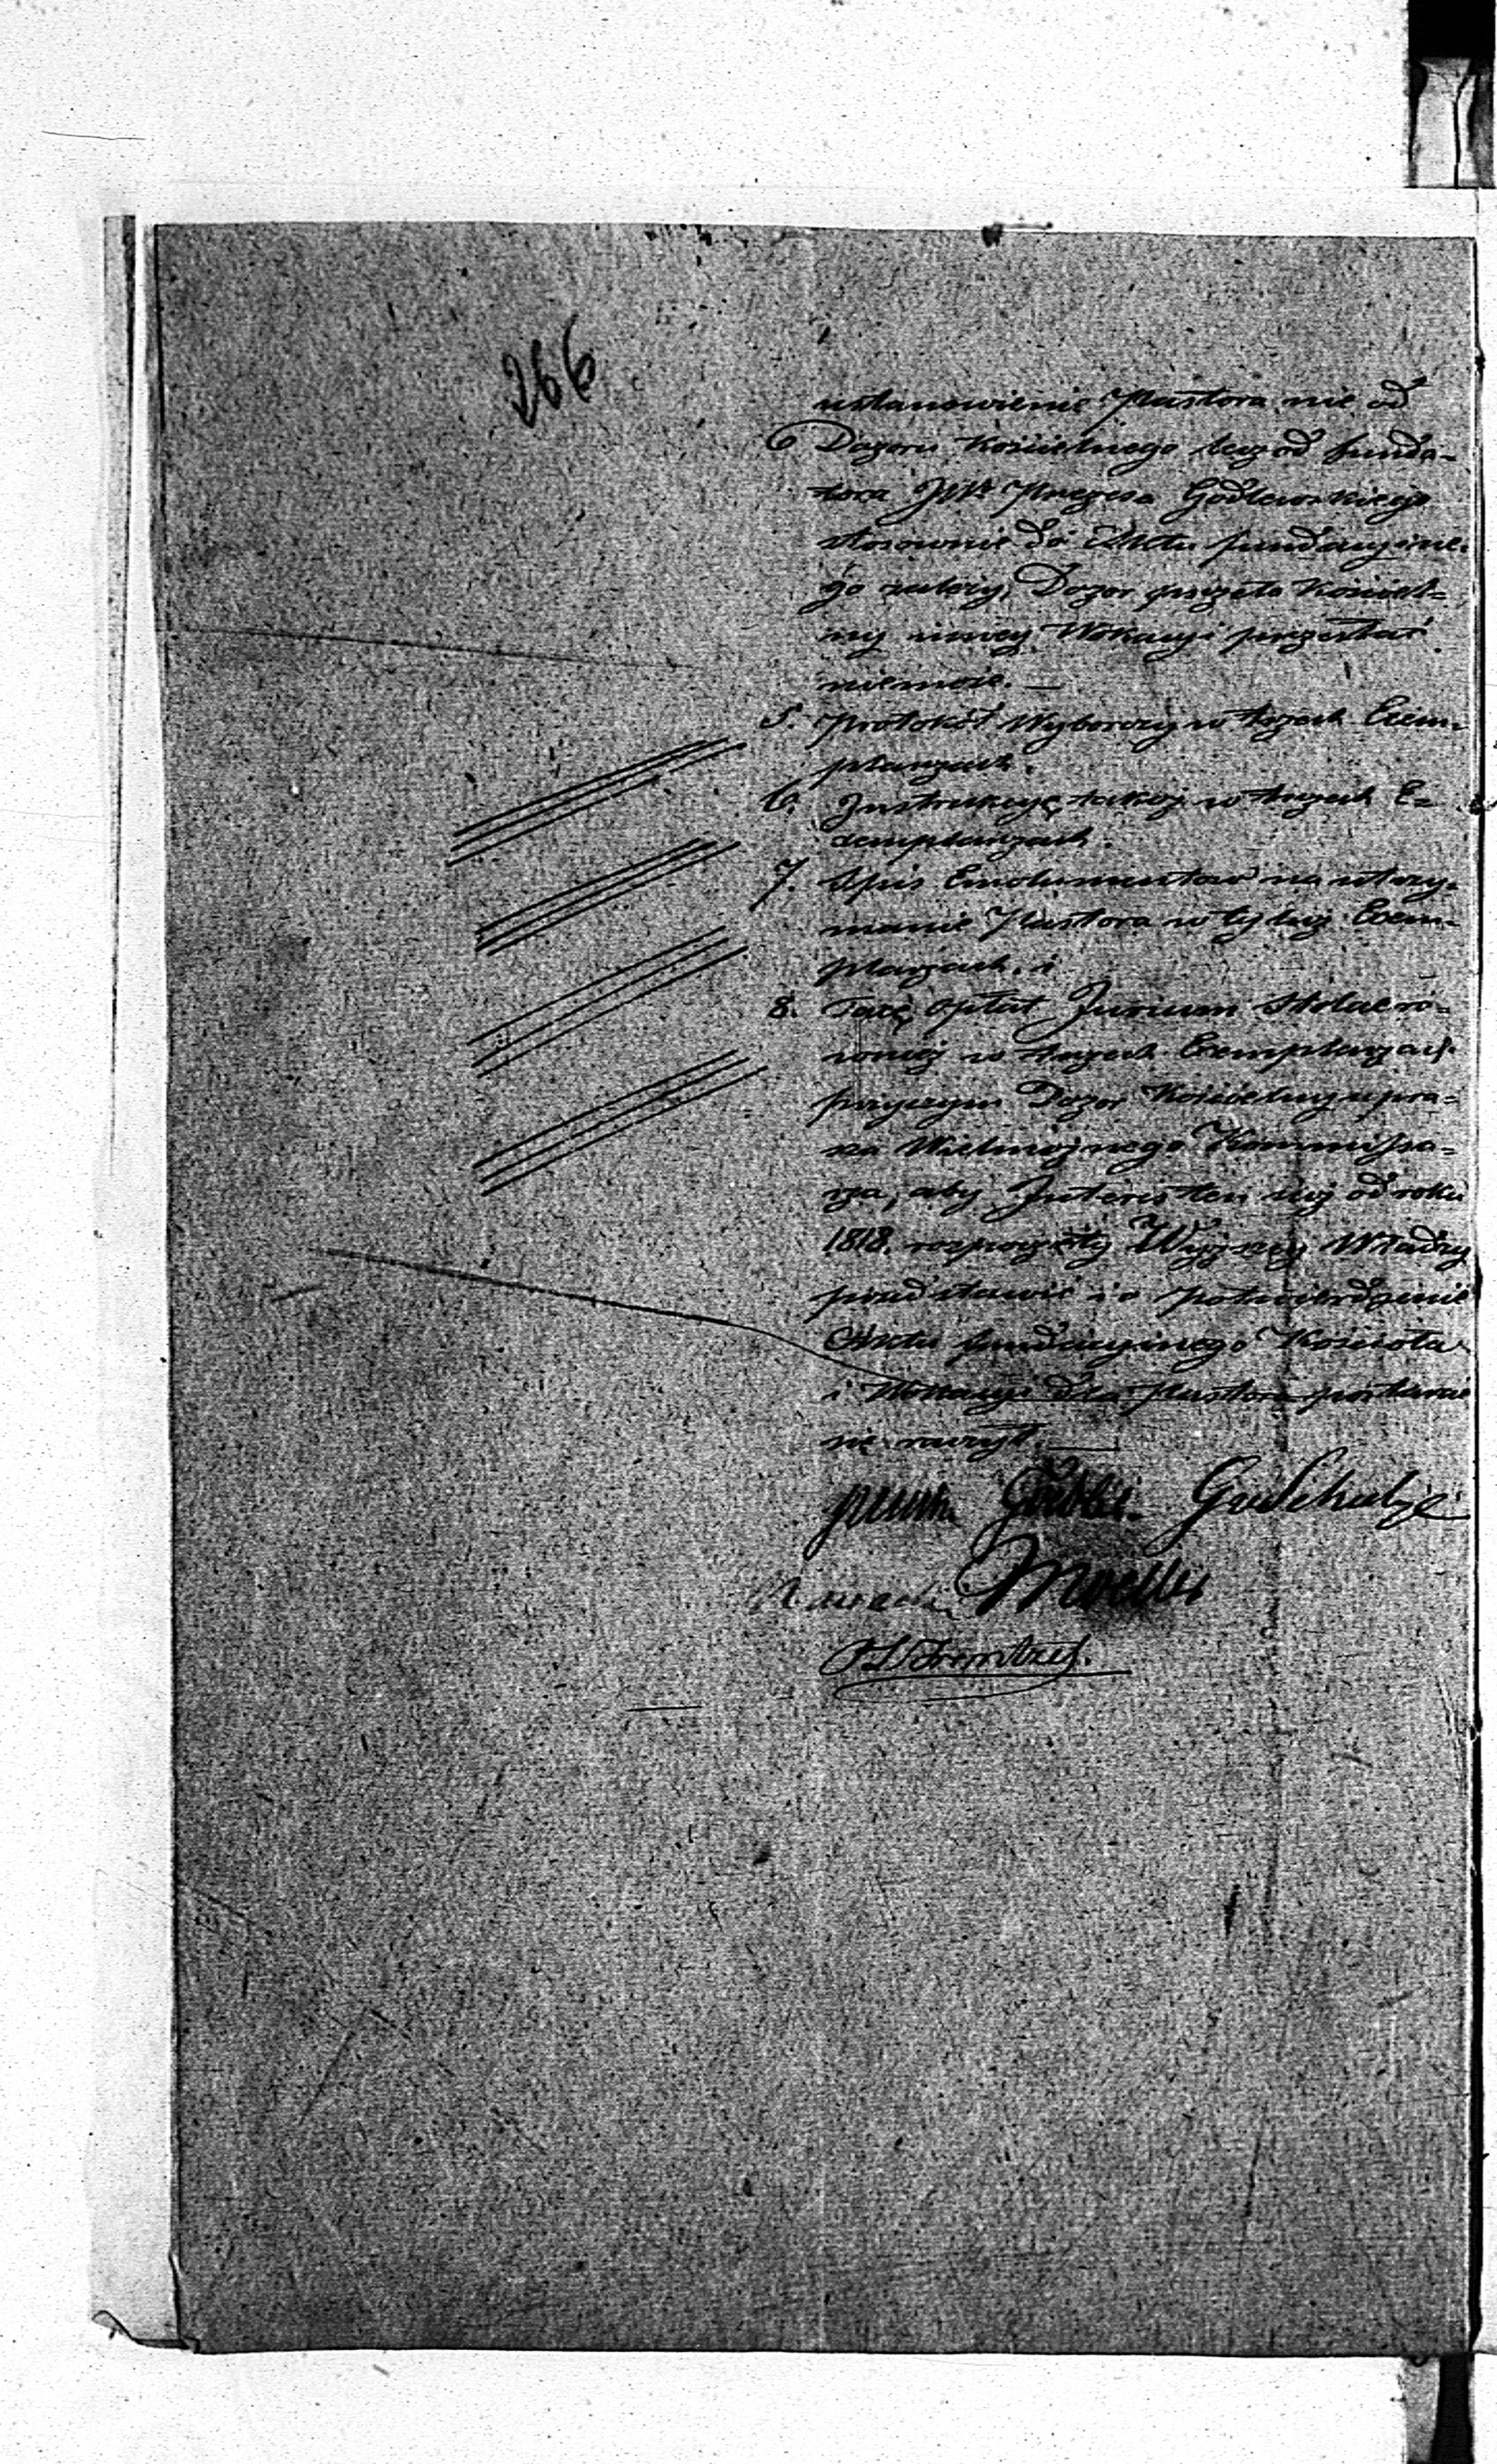 266
ustanowienie Pastora nie od
Dozoru Kościelnego lecz od funda-
tora JW Prezesa Godlewskiego
stosownie do Aktu fundacyine-
go zależy, Dozor przeto Kościel-
ny nowey Wokacyi przesłać
niemoże. —
5. Protokół Wyborczy w trzech Exem-
plarzach.
6. Instrukcyę takoż w trzech E-
xemplarzach.
7. Spis Emolumentow na utrzy-
manie Pastora w tyluż Exem-
plarzach. i
8. Taxę opłat Jurium Stolae ró-
wnież w trzech Exemplarzach.
przyczym Dozor Kościelny upra-
sza Wielmożnego Kommissa-
rza, aby Interes ten już od roku
1818. rozpoczęty Wyższey Władzy
przedstawić i o potwierdzenie
Aktu fundacyinego Kościoła
i Wokacyi dla Pastora postarać
się raczył. —
Moeller